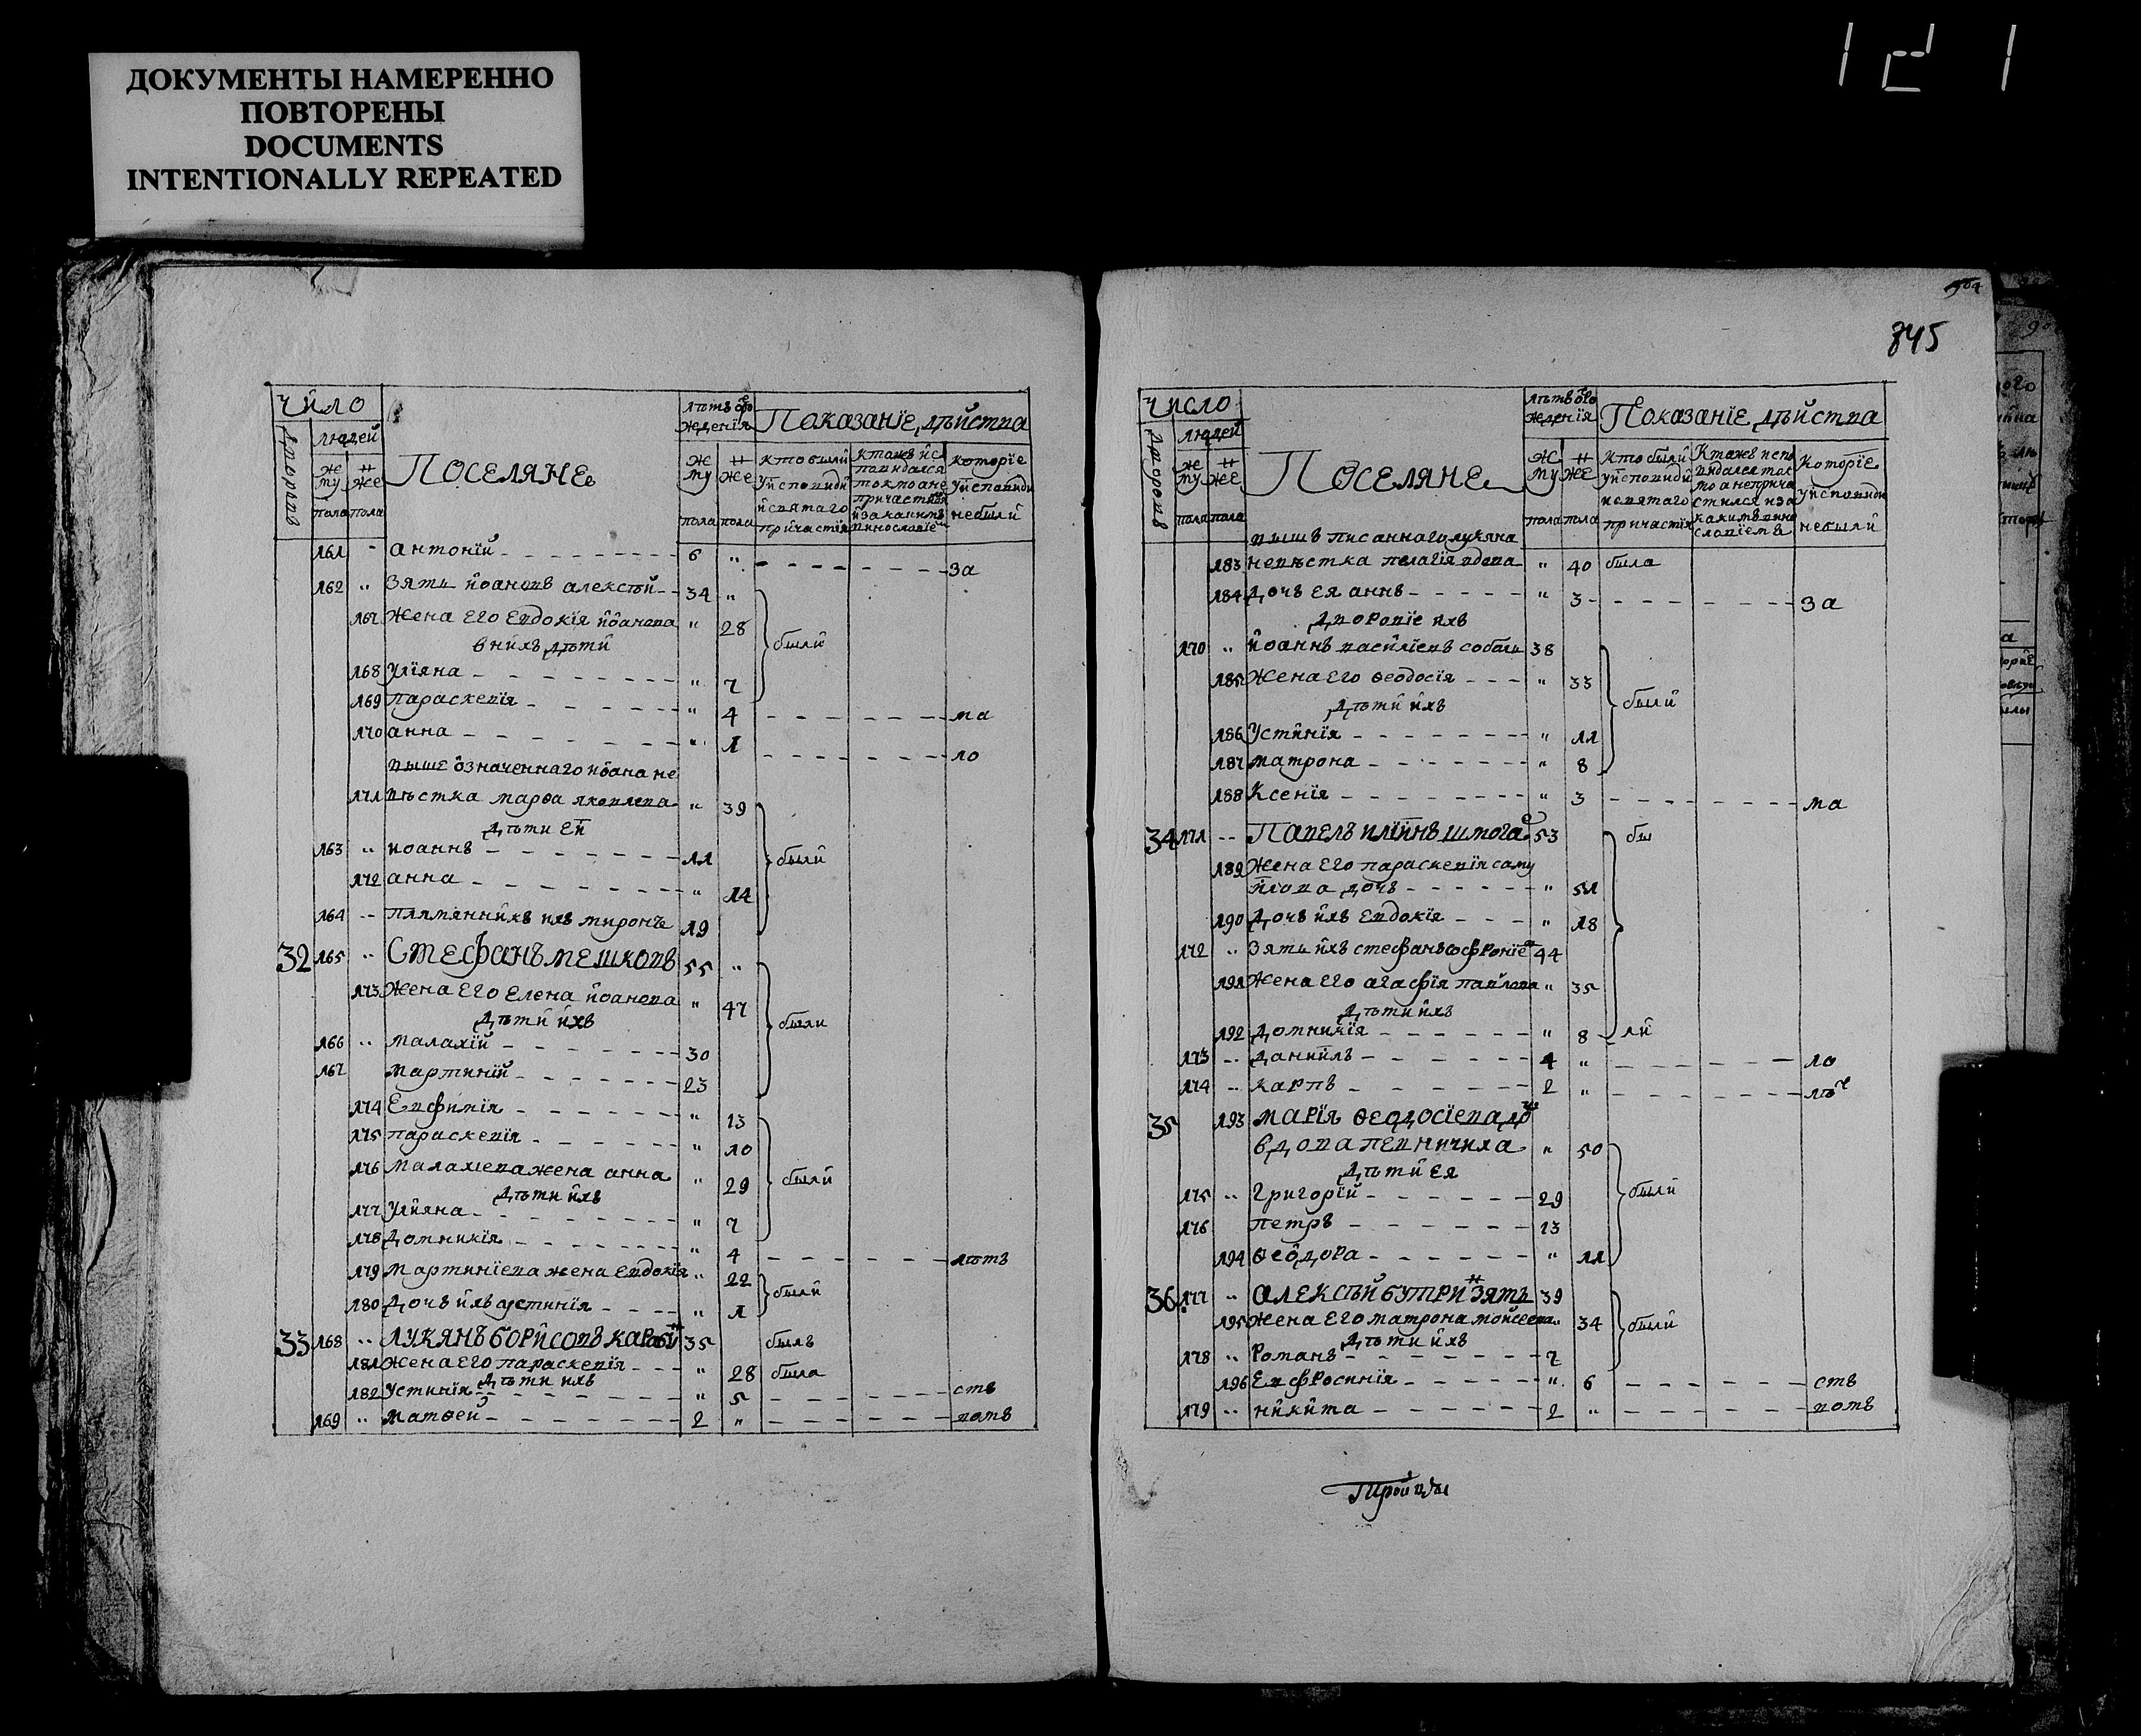 ДОКУМЕНТЫ НАМЕРЕННО
ПОВТОРЕНЫ
DOCUMENTS
INTENTIONALLY REPEATED
121
845
число
людей
дворовъ
му пола
же пола
Поселяне
лѣтъ ѿ рожденія
му пола
же пола
Показаніе дѣйства
кто были у исповиди и святаго причастія
которіе у исповиди не были
161 антоній 6 „ за
162 „ Зять иоановъ алексѣй 34 „
167 Жена его Евдокія иоанова „ 28
в нихъ дѣти
были
168 Уліяна „ 7
169 Параскевія „ 4 ма
170 анна „ 1 ло
выше означеннаго иоана не
171 вѣстка марѳа яковлева „ 39
дѣти ей
163 „ иоаннъ 11
были
172 анна „ 14
164 племянникъ ихъ миронъ 19
32 165 „ Стефанъ Мешковъ 55 „
173 Жена его Елена иоанова „ 47
дѣти ихъ
были
166 „ малахій 30
167 мартиній 23
174 Евфимія „ 13
175 параскевія „ 10
176 Малахіева жена анна „ 29
были
дѣти ихъ
177 Уліяна „ 7
178 Домникія „ 4 лѣтъ
179 Мартиніева жена Евдокія „ 22
были
180 Дочь ихъ устинія „ 1
33 168 „ Лукянъ Борисовъ 35 былъ
181 Жена его параскевія „ 28 была
дѣти ихъ
182 Устинія „ 5 ств
169 „ Матѳей 2 „ вомъ
число
людей
дворовъ
му пола
же пола
Поселяне
лѣтъ ѿ рожденія
му пола
же пола
Показаніе дѣйства
кто были у исповиди и святаго причастія
Которіе у исповиди не были
вышъ писаннаго лукяна
183 невѣстка пелагія вдова „ 40 была
184 Дочь ея аннъ „ 3 за
Дворовіе ихъ
170 „ иоаннъ василіевъ 38
185 Жена его ѳеодосія „ 33
дѣти ихъ
были
186 Устинія „ 11
187 матрона „ 8
188 Ксенія „ 3 ма
34 171 Павелъ 53 бы
189 Жена его параскевія саму
йлова дочь „ 51
190 Дочь ихъ Евдокія „ 18
172 „ Зять ихъ стефанъ 44
191 Жена его агафія павлова „ 35
дѣти ихъ
192 Домникія „ 8 ли
173 даниилъ 4 „ ло
174 карпъ 2 „ лѣт
35 193 Марія Ѳеодосіева
вдова „ 50
дѣти ея
были
175 „ григорій 29
176 петръ 13
194 Ѳеодора „ 11
36 177 „ Алексѣй Бутри зять 39
195 Жена его матрона мойсеева „ 34
были
дѣти ихъ
178 „ Романъ 7
196 Евфросинія „ 6 ств
179 „ никита 2 „ вомъ
Троицы